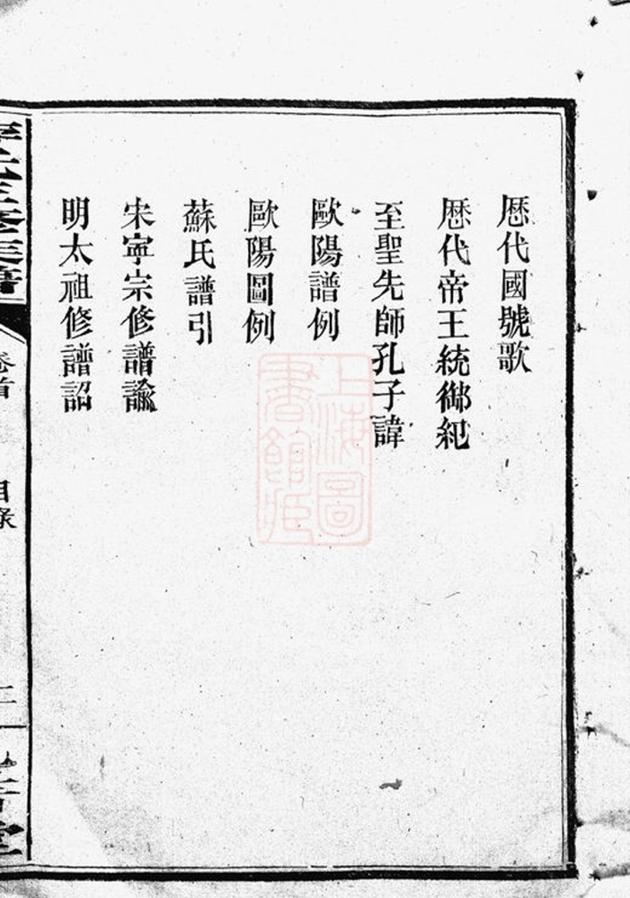 歴代國號歌
歴代帝王統御紀
至聖先師孔子諱
歐陽譜例
歐陽圖例
蘇氏譜引
宋寧宗修譜諭
明太祖修譜詔
卷首
目錄
上海圖
書館藏